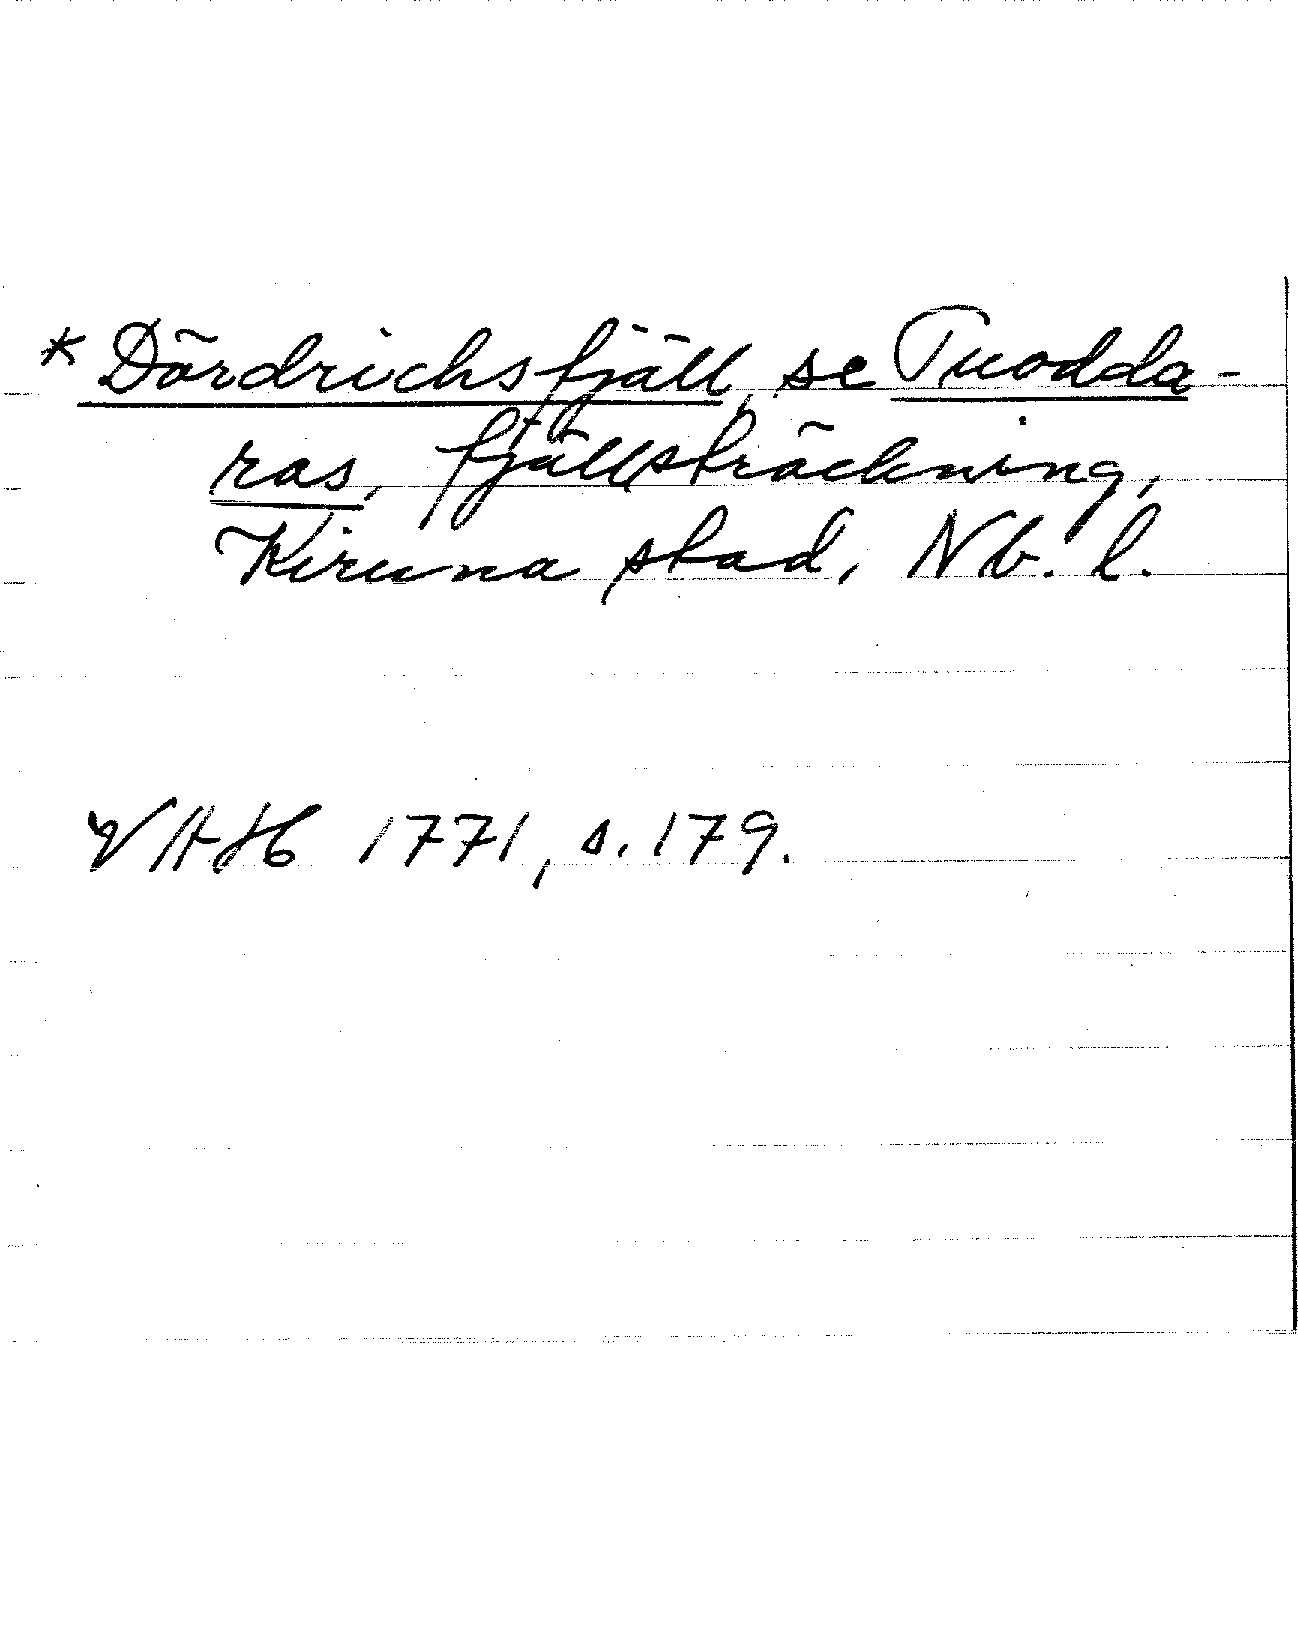 * Dördrichsfjäll, se Tuodda-
ras, fjällsträckning,
Kiruna stad, Nb. l.
VAH 1771, s. 179.